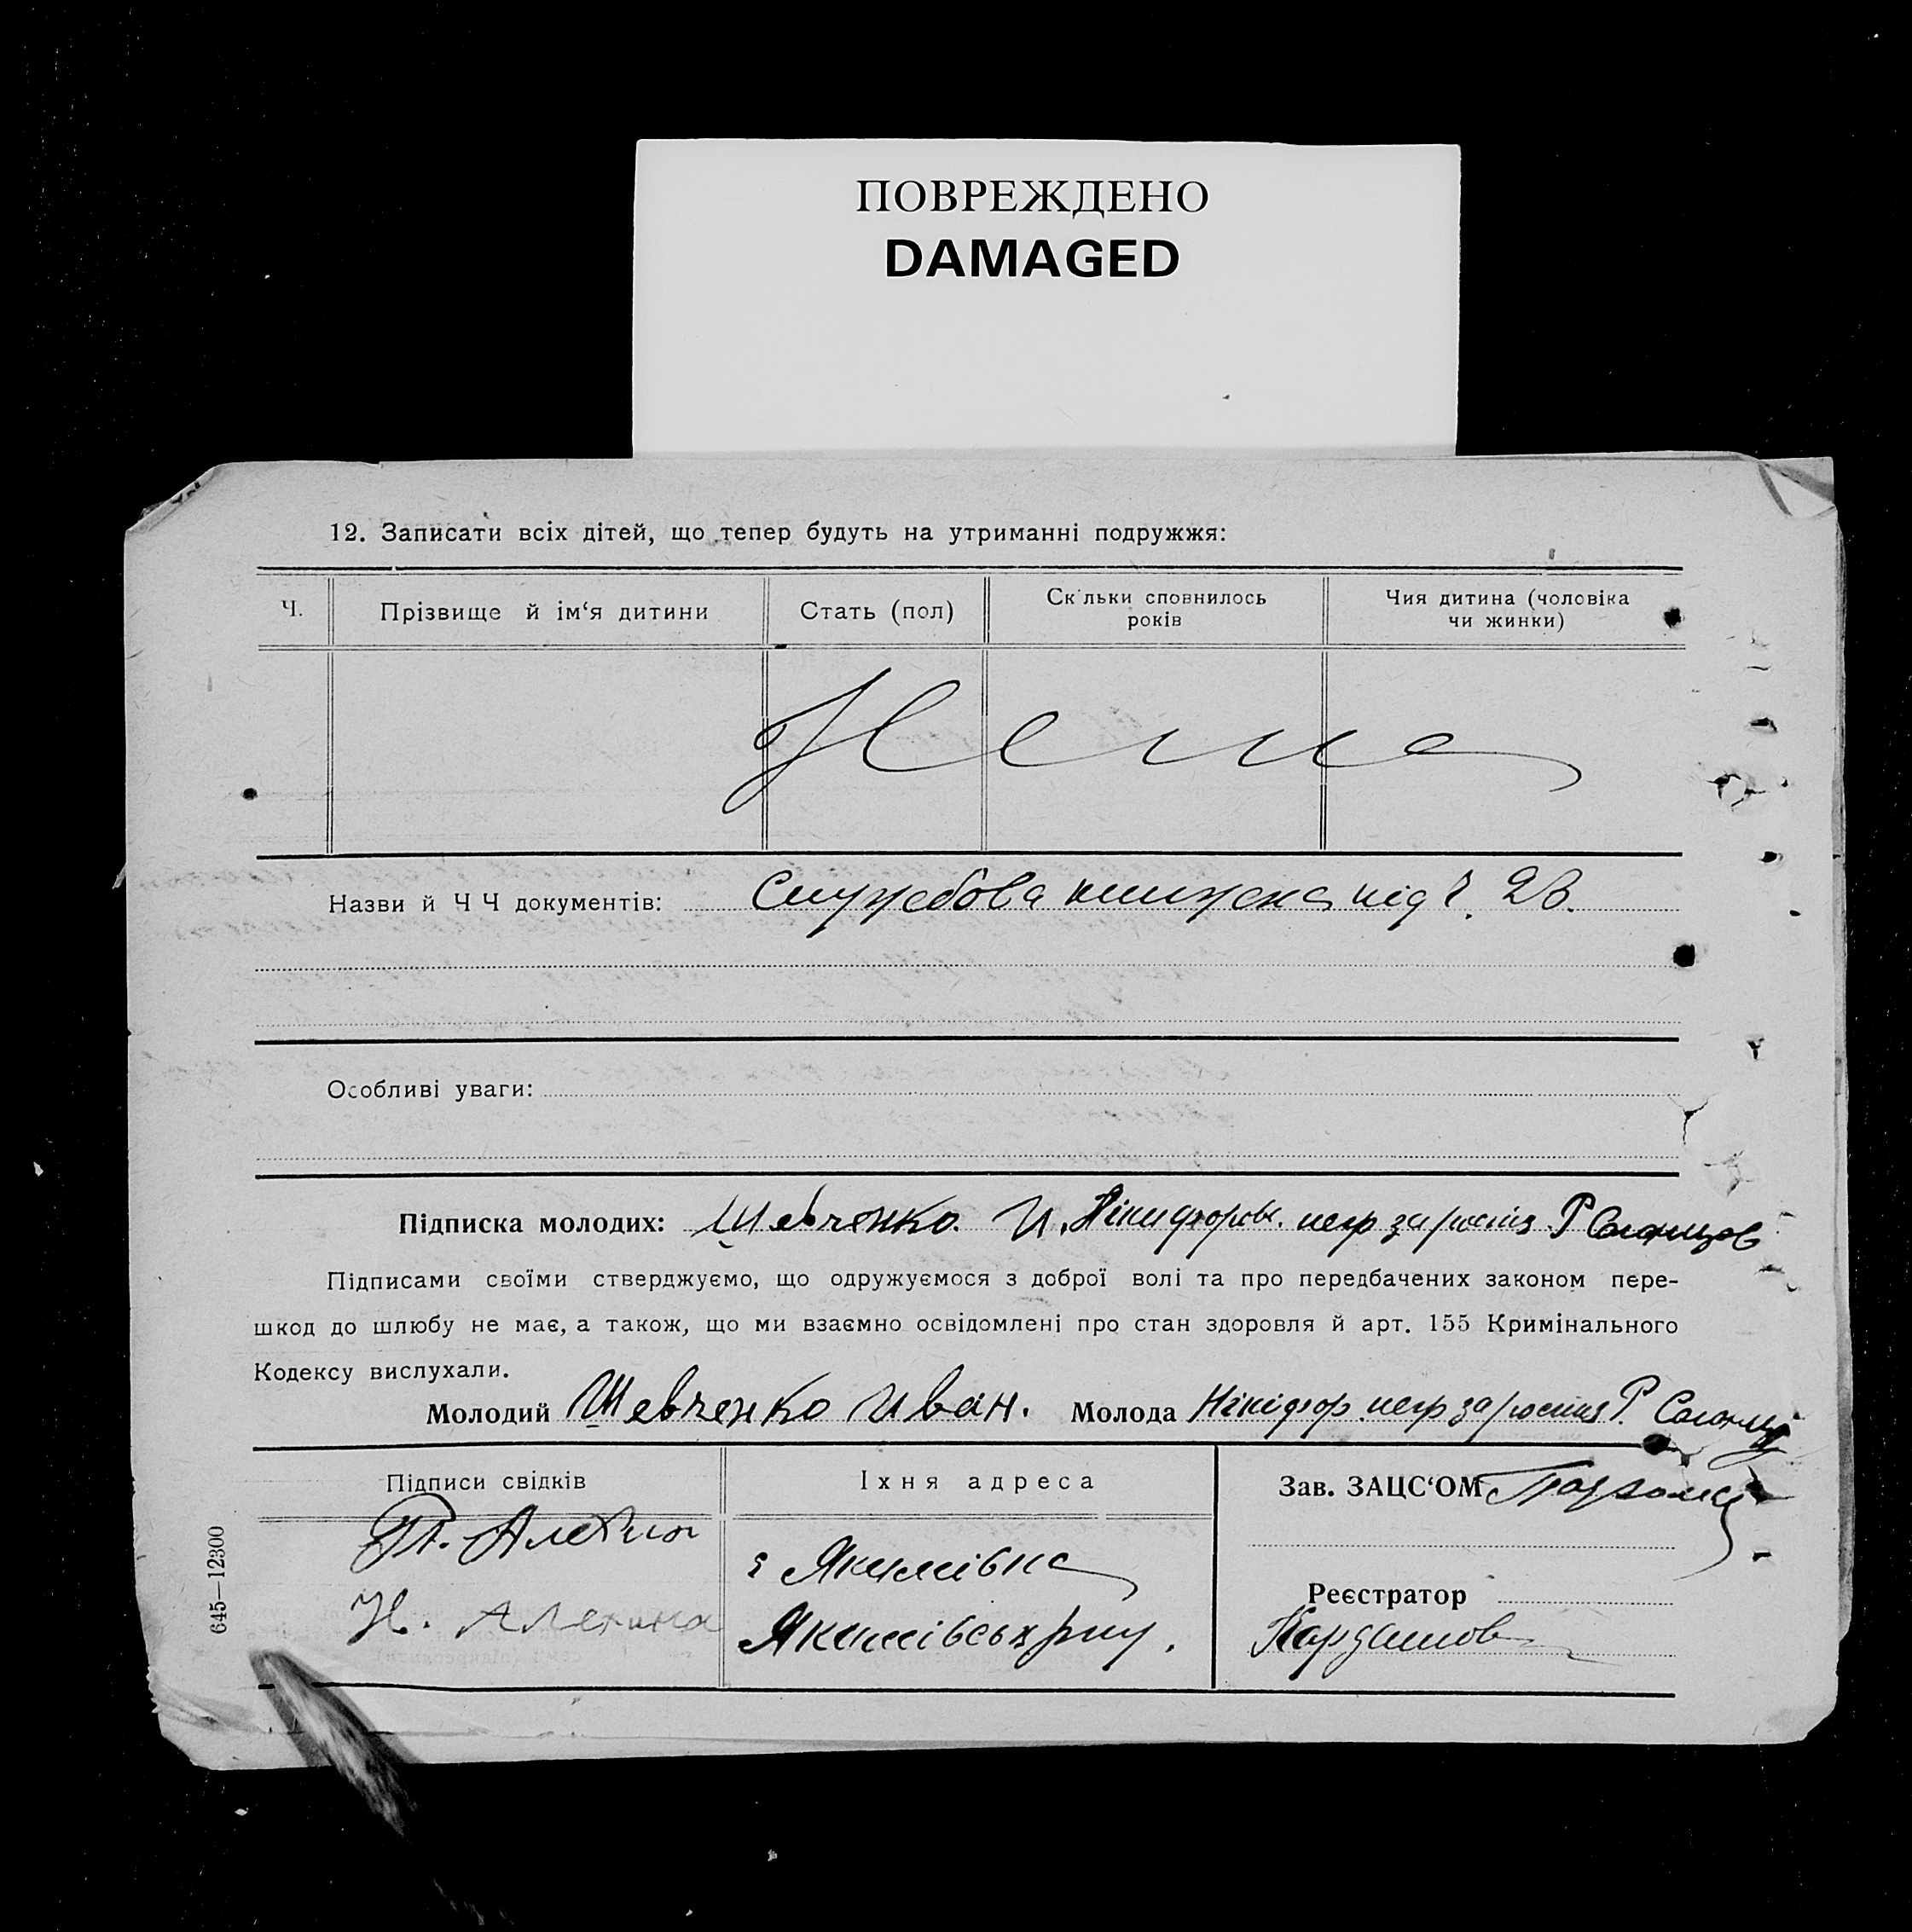 ПОВРЕЖДЕНО
DAMAGED
12. Записати всіх дітей, що тепер будуть на утриманні подружжя:
Ч. Прізвище й ім‘я дитини Стать (пол) Ск льки сповнилось років Чия дитина (чоловіка чи жинки)
Нема
Назви й Ч Ч документів: Службова книжка під ч. 28.
Особливі уваги:
Підписка молодих: Шевченко И. Нікифоров. негр за
Підписами своїми стверджуємо, що одружуємося з доброї волі та про передбачених законом пере-
шкод до шлюбу не має, а також, що ми взаємно освідомлені про стан здоровля й арт. 155 Кримінального
Кодексу вислухали.
Молодий Шевченко Иван. Молода Нікіфор. негр за
Підписи свідків Іхня адреса Зав. ЗАЦС‘ОМ
Алехин
с Якимівка
Реєстратор
Н. Алехина Якимівськ рну. Кардашов
645—12300